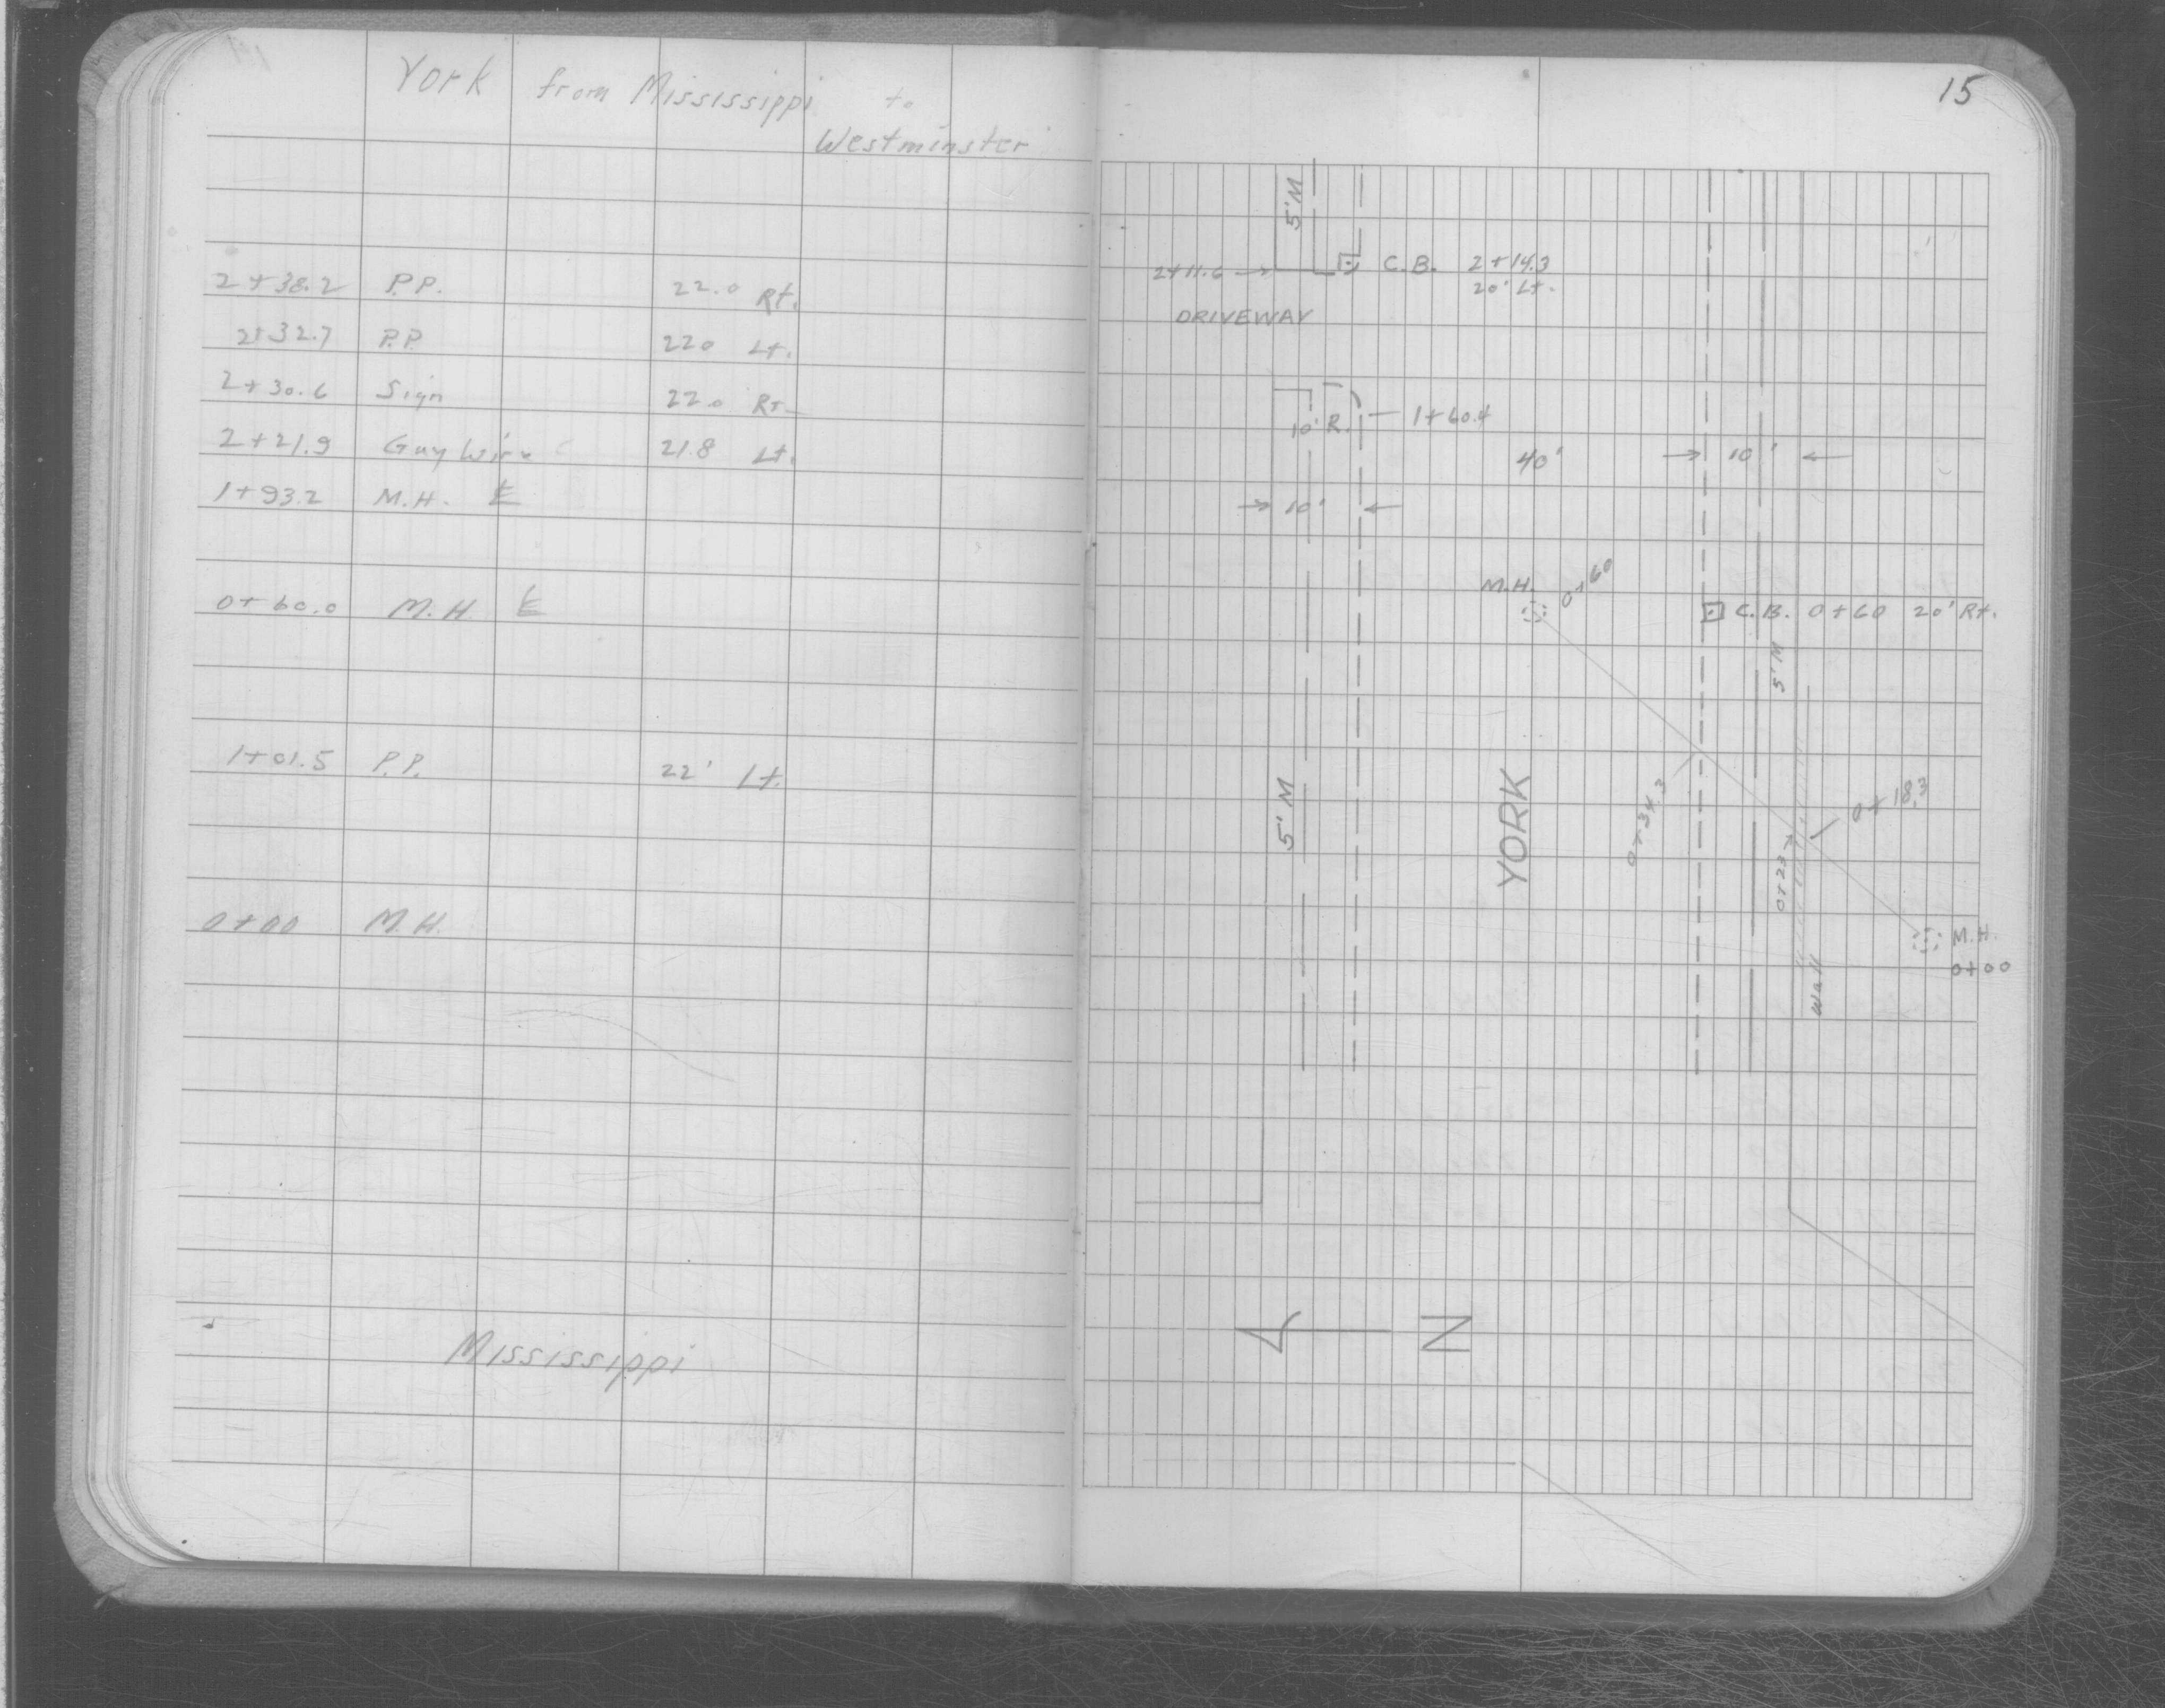 York from Mississippi to
Westminster
2+38.2 P.P. 22.0 Rt.
2+32.7 P.P. 22.0 Lt.
2+30.6 Sign 22.0 Rt.
2+21.9 Guy Wire 21.8 Lt.
1+93.2 M.H. ⅊
0+60.0 M.H. ⅊
1+01.5 P.P. 22' Lt.
0+00 M.H.
Mississippi
15
5'M
2+11.6 C.B. 2+14.3
20' Lt.
DRIVEWAY
10' R. 1+60.4
40' 10'
10'
M.H. 0+60
C.B. 0+60 20' Rt.
5'M
5'M
YORK
0+34.3
0+18.3
0+23
Wall
M.H.
0+00
N